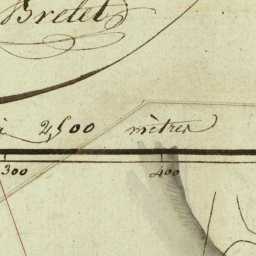 Bretel
i 2,500 mètres
300 400